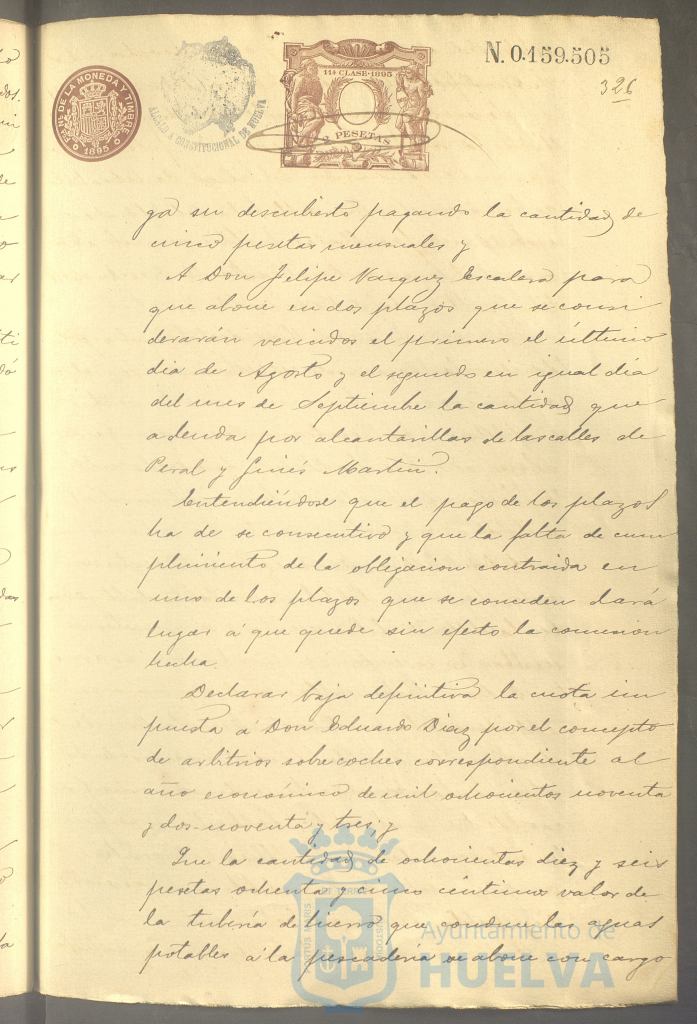 FCA. NAL. DE LA MONEDA Y TIMBRE
1895
ALCALDIA CONSTITUCIONAL DE HUELVA
11ª CLASE-1895
2 PESETAS
N. 0.159.505
326
ga su descubierto pagando la cantidad de
cinco pesetas mensuales y
A Don Felipe Vazquez Escalera para
que abone en dos plazos que se consi
derarán vencidos el primero el último
dia de Agosto y el segundo en igual dia
del mes de Septiembre la cantidad que
adeuda por alcantarillas de las calles de
Peral y Ginés Martin.
Entendiéndose que el pago de los plazos
ha de se consecutivo y que la falta de cum
plimiento de la obligacion contraida en
uno de los plazos que se conceden dará
lugar á que quede sin efecto la concesion
hecha.
Declarar baja definitiva la cuota im
puesta á Don Eduardo Diaz por el concepto
de arbitrios sobre coches correspondiente al
año económico de mil ochocientos noventa
y dos-noventa y tres; y
Que la cantidad de ochocientas diez y seis
pesetas ochenta y cinco céntimos valor de
la tubería de hierro que conduce las aguas
potables á la pescadería se abone con cargo
Ayuntamiento de
HUELVA